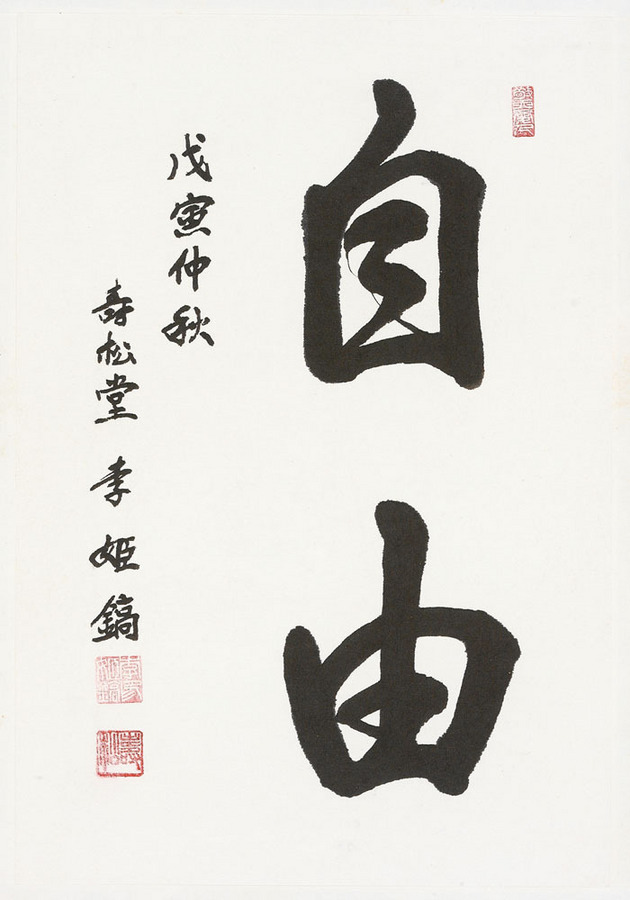 自由
戊寅仲秋
壽松堂 李姬鎬